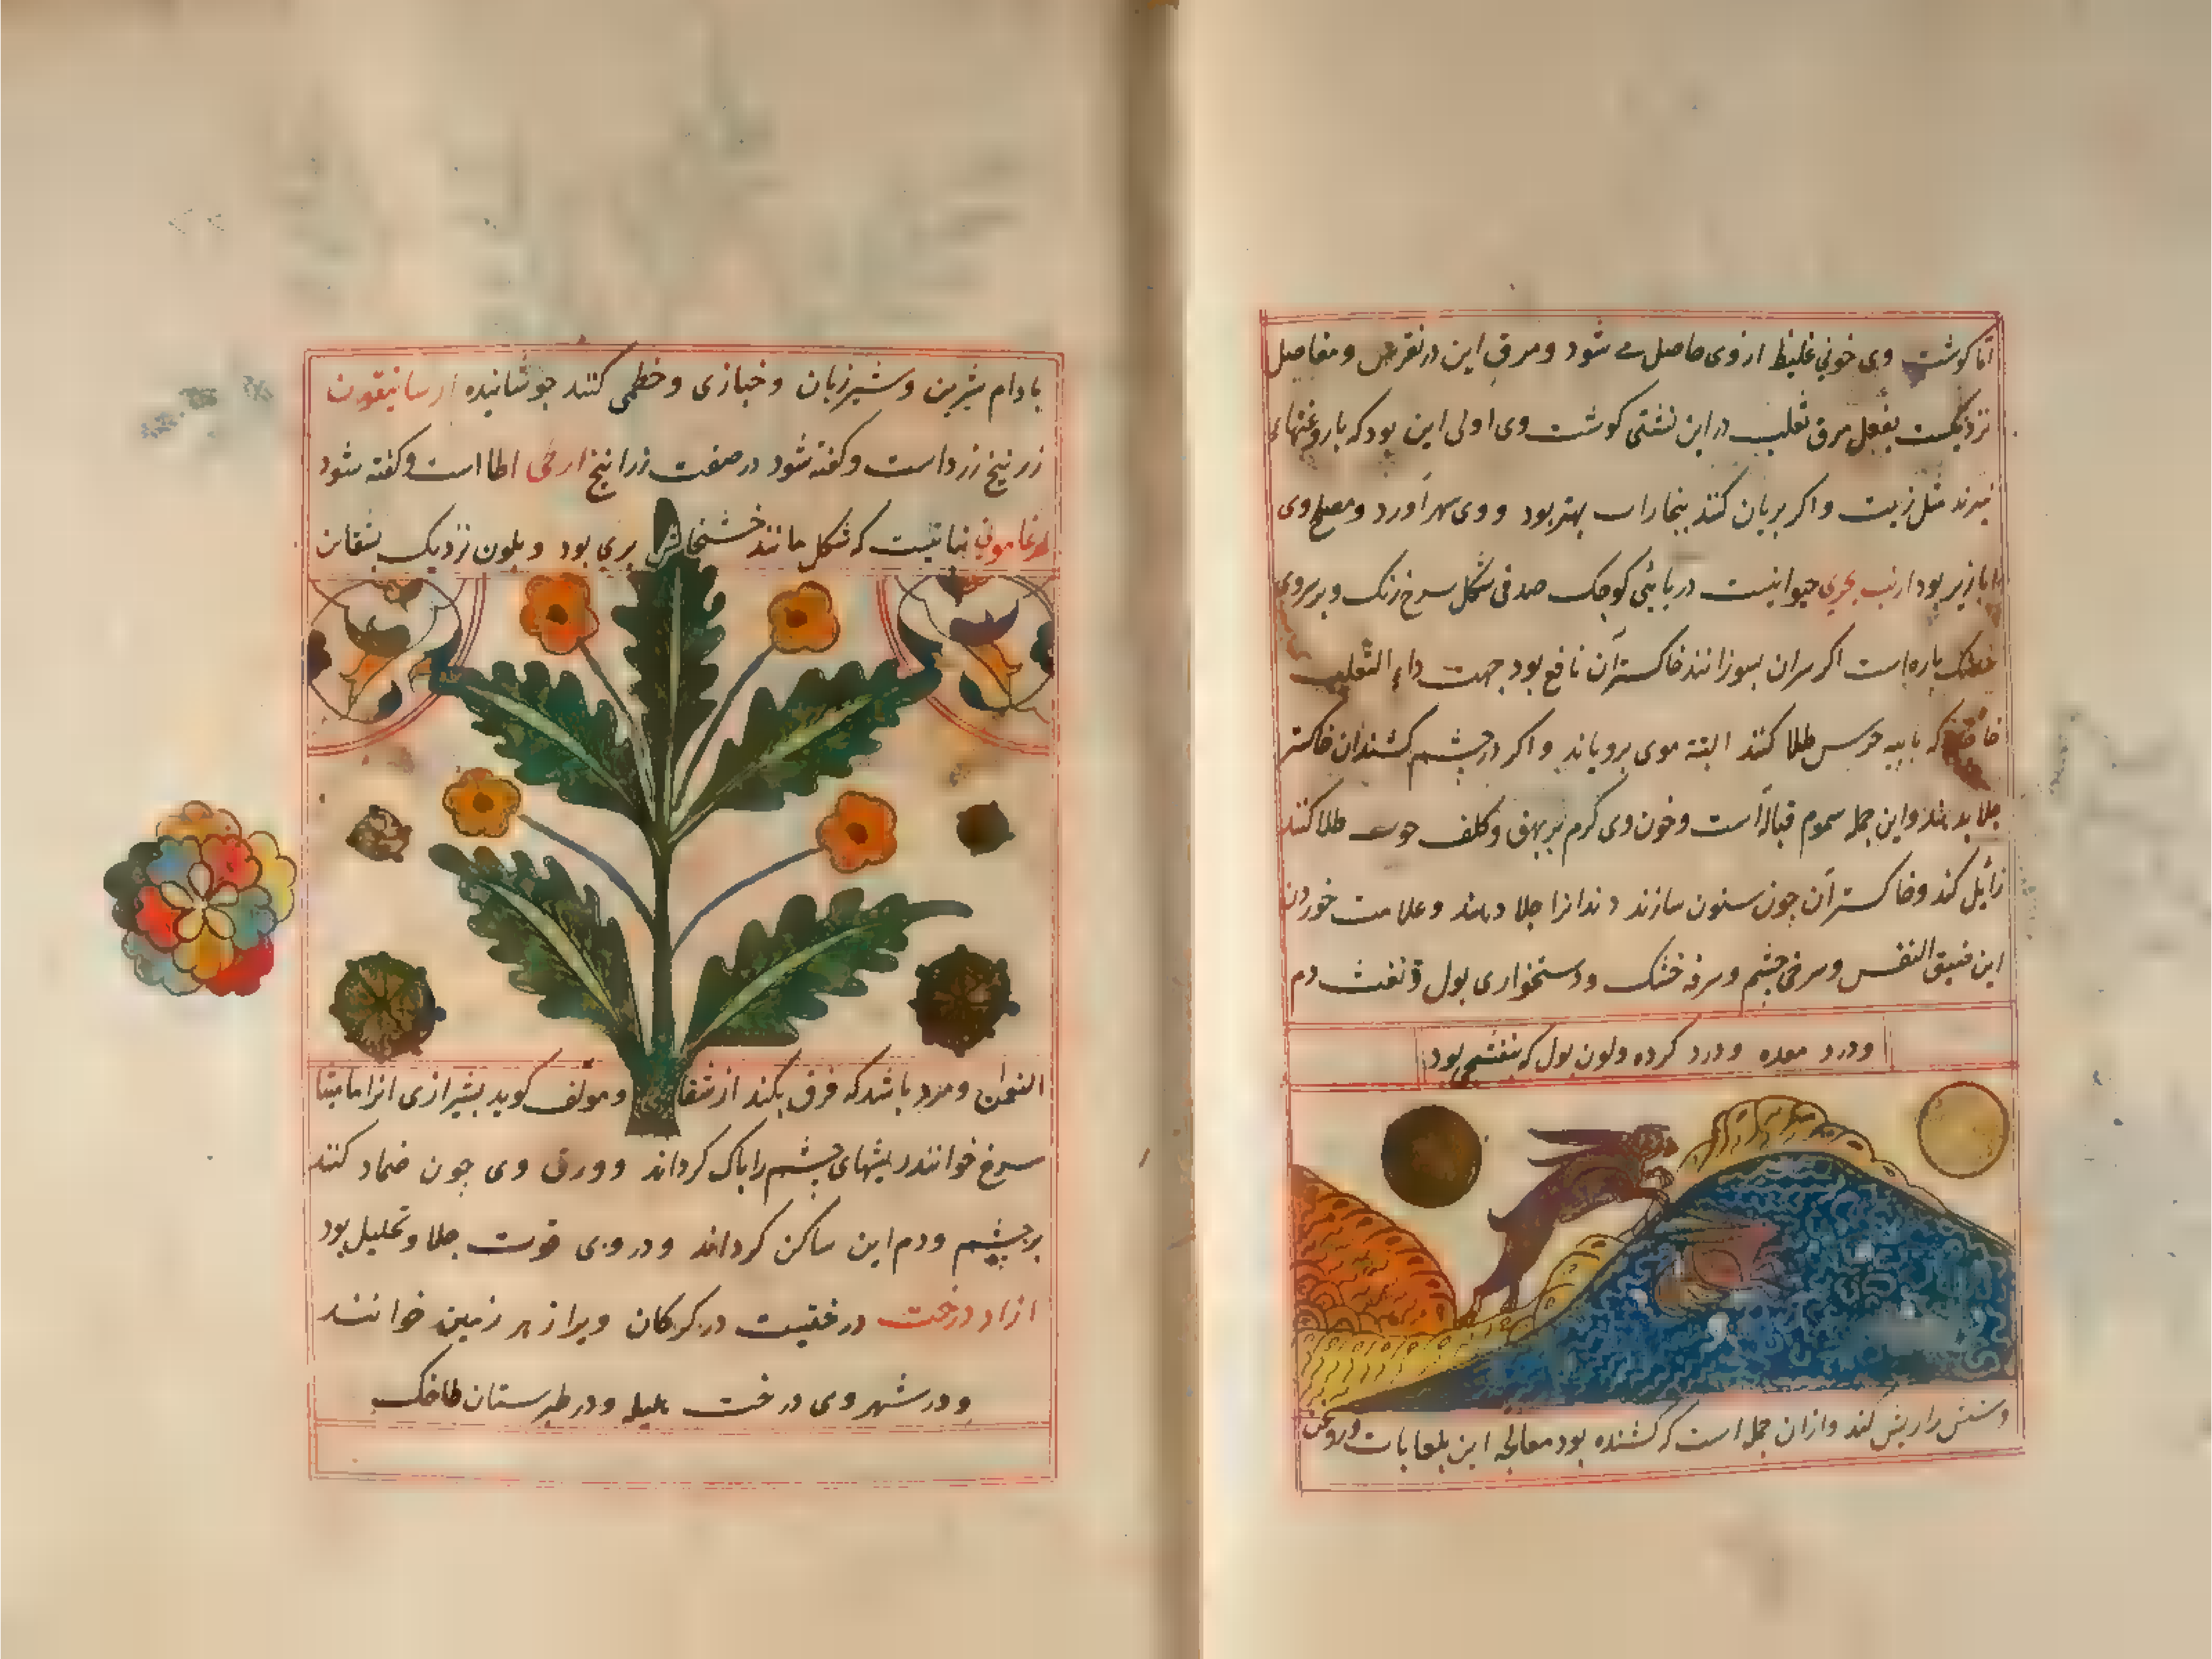 اما کوشت وی خونی غلیظ از وی حاصل مے شود و مرق این در نقرس و مفاصل
نزدیکست بفعل مرق ثعلب در این نشتی کوشت وی اولی این بود که با روغنهای
مثل زیت و اکر بریان کنند بنجار اب بهتر بود و وی سهر آورد و مصلح وی
ابازیر بود ارنب بحری حیوانیست دریائی کوچک صدفی شکل سرخ رنک و بر سر وی
پاره است اکر سر ان بسوزانند خاکستر آن نافع بود جهت داء الثعلب
خاصه که با پیه خرس طلا کنند البته موی برویاند و اکر در چشم کشند ان خاکستر
جلا بدهند و این جمله سموم قتاله است و خون وی کرم بر بهق و کلف چون طلا کنند
زائل کند و خاکستر آن چون سنون سازند دندانرا جلا دهند و علامت خوردن
این ضیق النفس و سرخی چشم و سرفه خشک و دشخواری بول و نفث دم
و درد معده و درد کرده و لون بول که بنفشم بود
و شش را ریش کند و ازان جمله است که کشنده بود معالجه این بلعابات و روغن
بادام شیرین و شیر زنان و خبازی و خطمی کنند جوشانیده ارسانیقون
زرنیخ زرد است و کفته شود در صفت زرانیخ ارطی اطا است و کفته شود
ارغامونی نباتیست که شکل مانند خشخاش بری بود و بلون نزدیک بشقایق
النعمان و مرد باشد که فرق نکند از شقایق و مولف کوید بشیرازی انرا مامیثا
سرخ خوانند ریشهای چشم را پاک کرداند و ورق وی چون ضماد کنند
بر چشم ودم این ساکن کرداند و در وی قوت جلا و تحلیل بود
ازاد درخت درختیست در کرکان ویرا زهر زمین خوانند
و در شهر وی درخت هلیله و در طبرستان طاخک